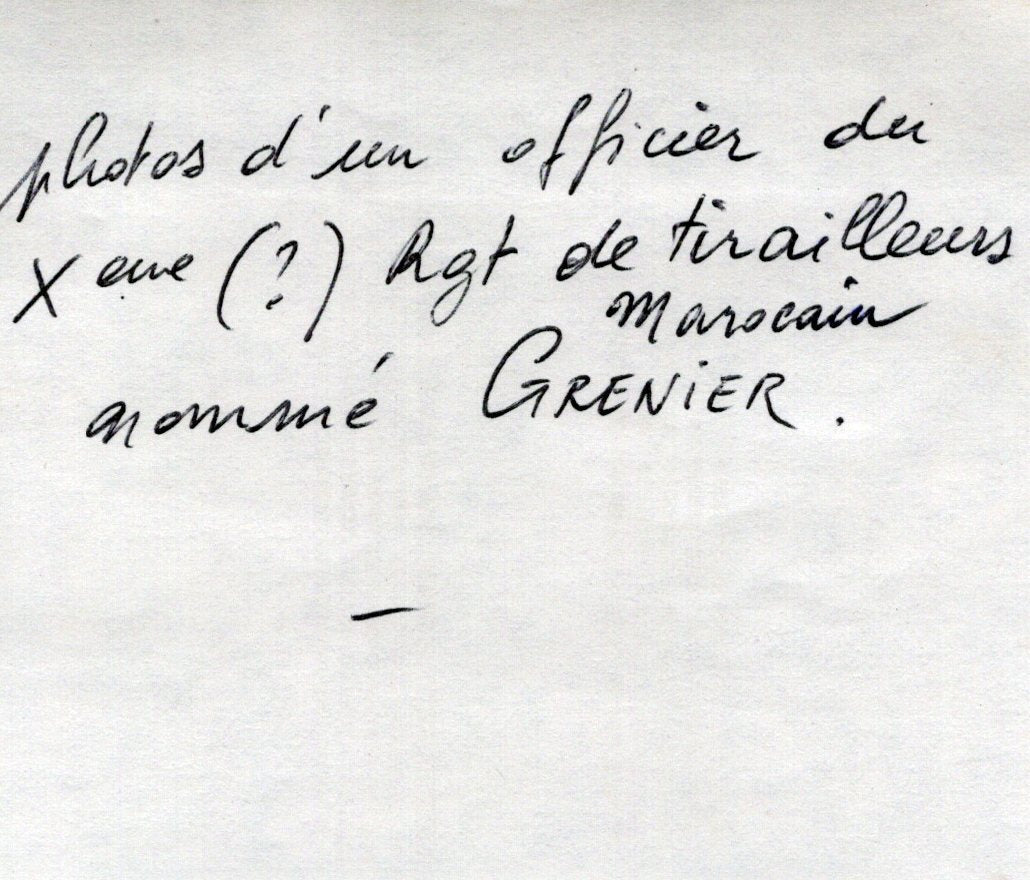 photos d'un officier du
X eme (?) Rgt de tirailleurs
Marocain
nommé GRENIER.
—